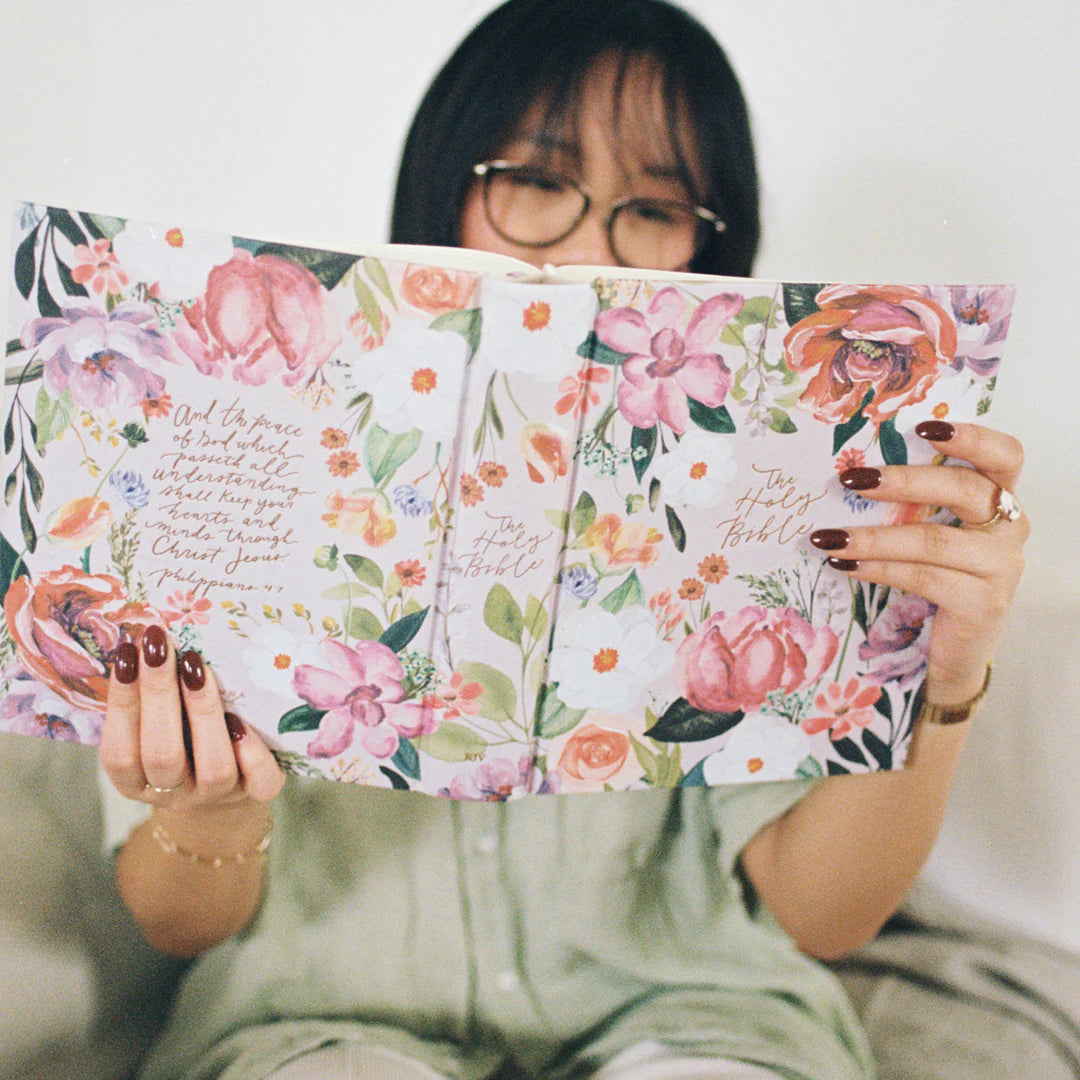 And the peace
of God which
passeth all
understanding
shall keep your
hearts and
minds through
Christ Jesus.
Philippians 4:7
The
Holy
Bible
KJV
The
Holy
Bible